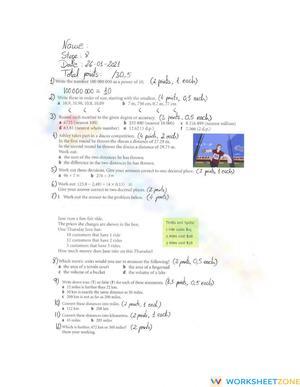 Name :
Stage : 8
Date : 26-01-2021
Total points: /30.5
1) Write the number 100 000 000 as a power of 10. (2 points, 1 each)
100 000 000 = 10
2) Write these in order of size, starting with the smallest. (4 points, 0,5 each)
a 10.9, 10.98, 10.8, 10.89 b 7 m, 750 cm, 0.7 m, 71 cm
3) Round each number to the given degree of accuracy. (3 points, 0,5 each)
a 6725 (nearest 100)
d 63.81 (nearest whole number) e 12.62 (1 d.p.)
4) takes part in a discus competition. (4 points, 2 each)
In the first round he throws the discus a distance of 27.29 m.
In the second round he throws the discus a distance of 29.75 m.
Work out:
a the sum of the two distances he has thrown
b the difference in the two distances he has thrown.
5) Work out these divisions. Give your answers correct to one decimal place. (2 points, 1 each)
6) Work out
Give your answer correct to two decimal places. (2 points)
7) Work out the answer to the problem below. (4 points)
Jane runs a fun fair ride.
The prices she charges are shown in the box.
One Thursday she has:
How much money does Jane take on this Thursday?
8) Which metric units would you use to measure the following? (2 points, 0,5 each)
a the area of a tennis court b the area of a fingernail
c the volume of a bucket d the volume of a lake
9) Write down true (T) or false (F) for each of these statements. (0,5 points, 0,5 each)
10) Convert these distances into kilometres. (2 points, 1 each)
a 112 km b 208 km
11) Convert these distances into kilometres. (2 points, 1 each)
12) Which is further, 472 km or 305 miles? (2 points)
Show your working.
WORKSHEETZONE